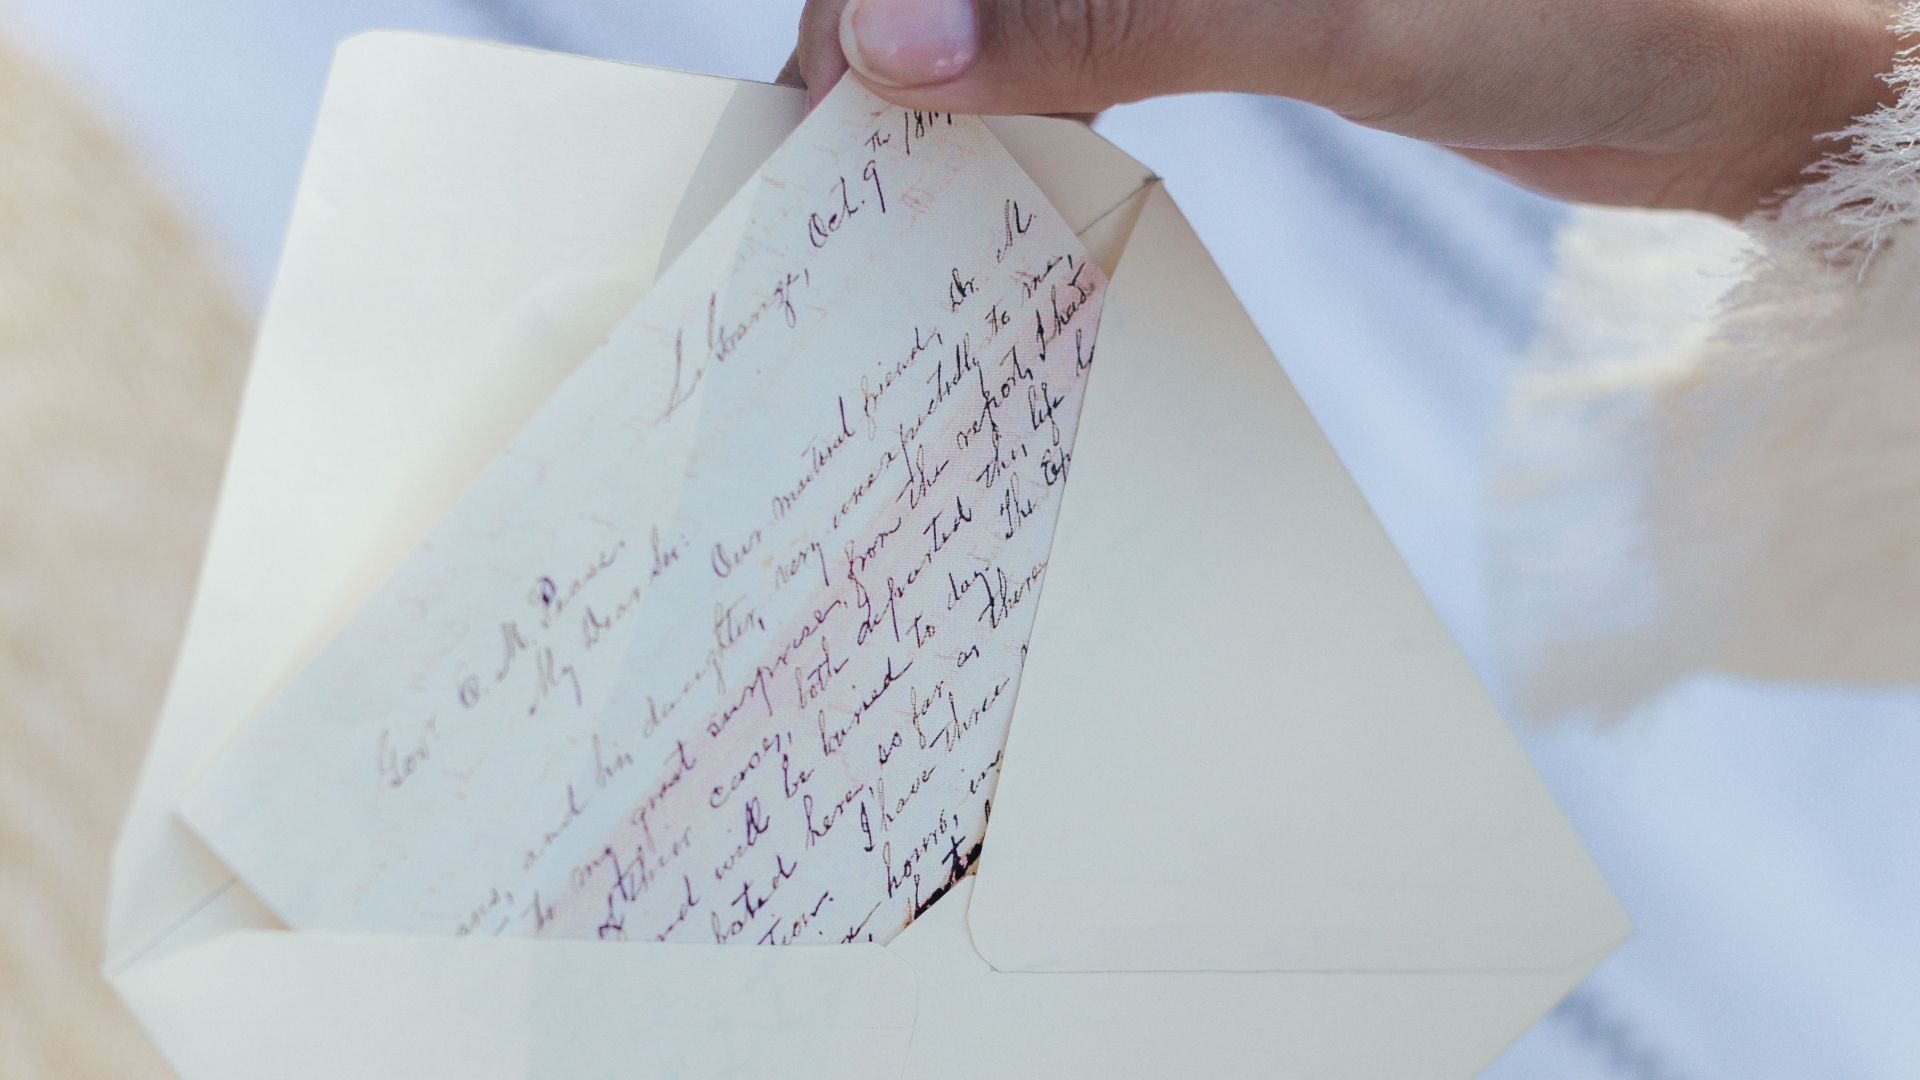 LaGrange, Oct. 9th 18
Gov. E. M. Pease.
My Dear Sir:
Our mutual friend, Dr. M
and his daughter, very unexpectedly to me,
to my great surprise, from the report, I had
of their cases, both departed this life
and will be buried to day. The Ep
bated here, so far as there
tion. I have three
hours, in